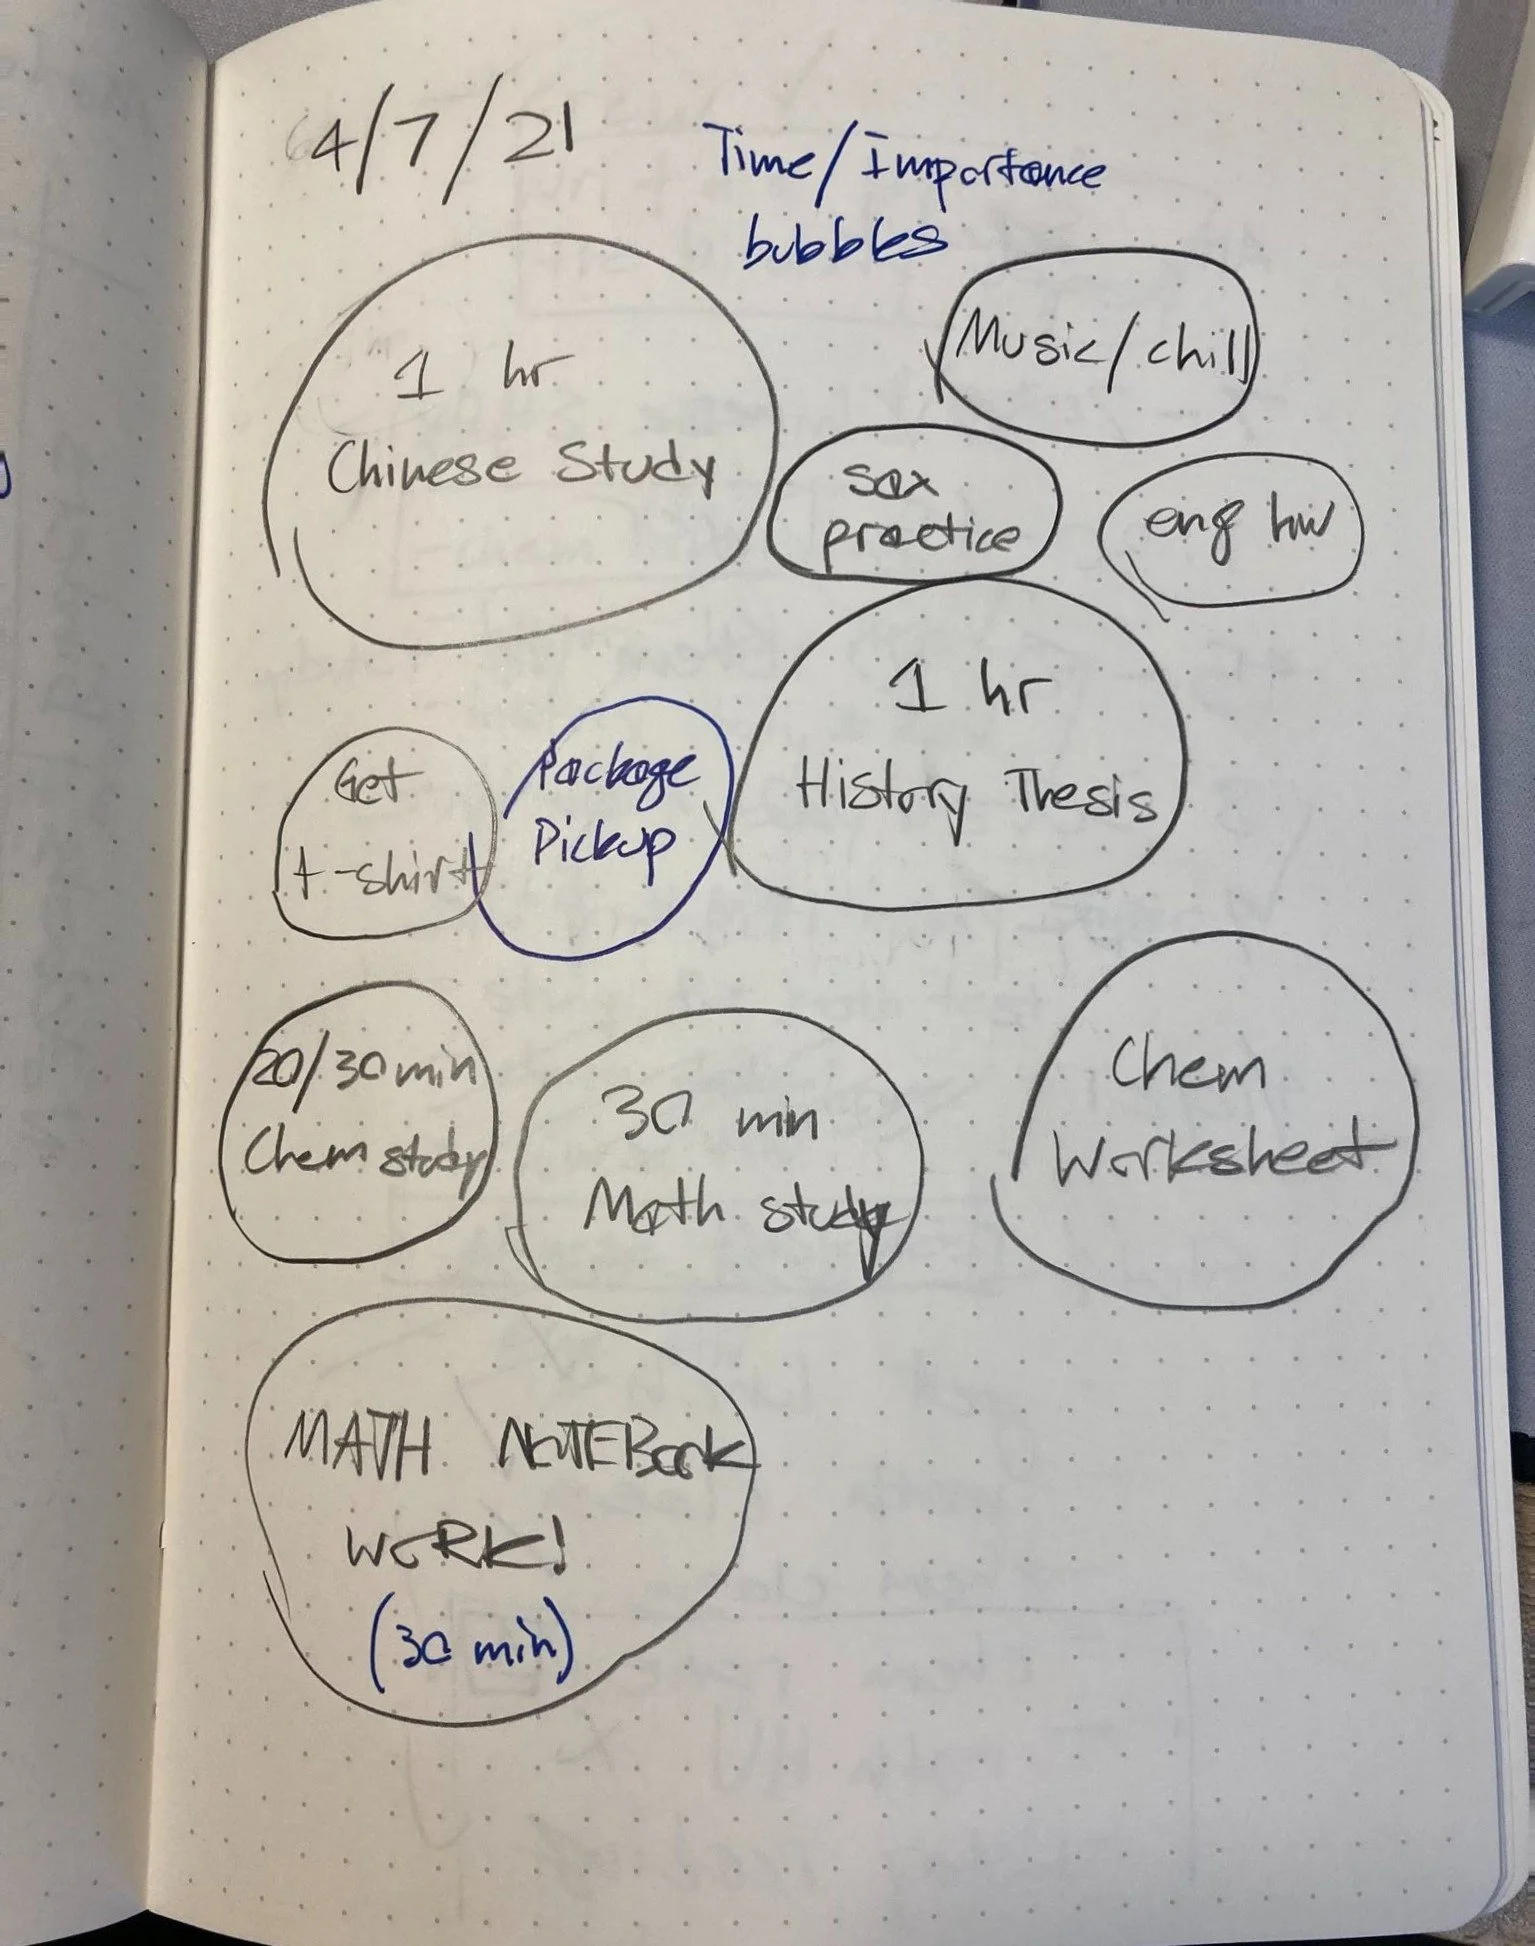 4/7/21
Time/Importance
bubbles
1 hr
Chinese Study
Music/chill
sax
practice
eng hw
1 hr
History Thesis
Get
t-shirt
Package
Pickup
20/30 min
Chem study
30 min
Math study
Chem
Worksheet
MATH NOTEBook
WoRK!
(30 min)